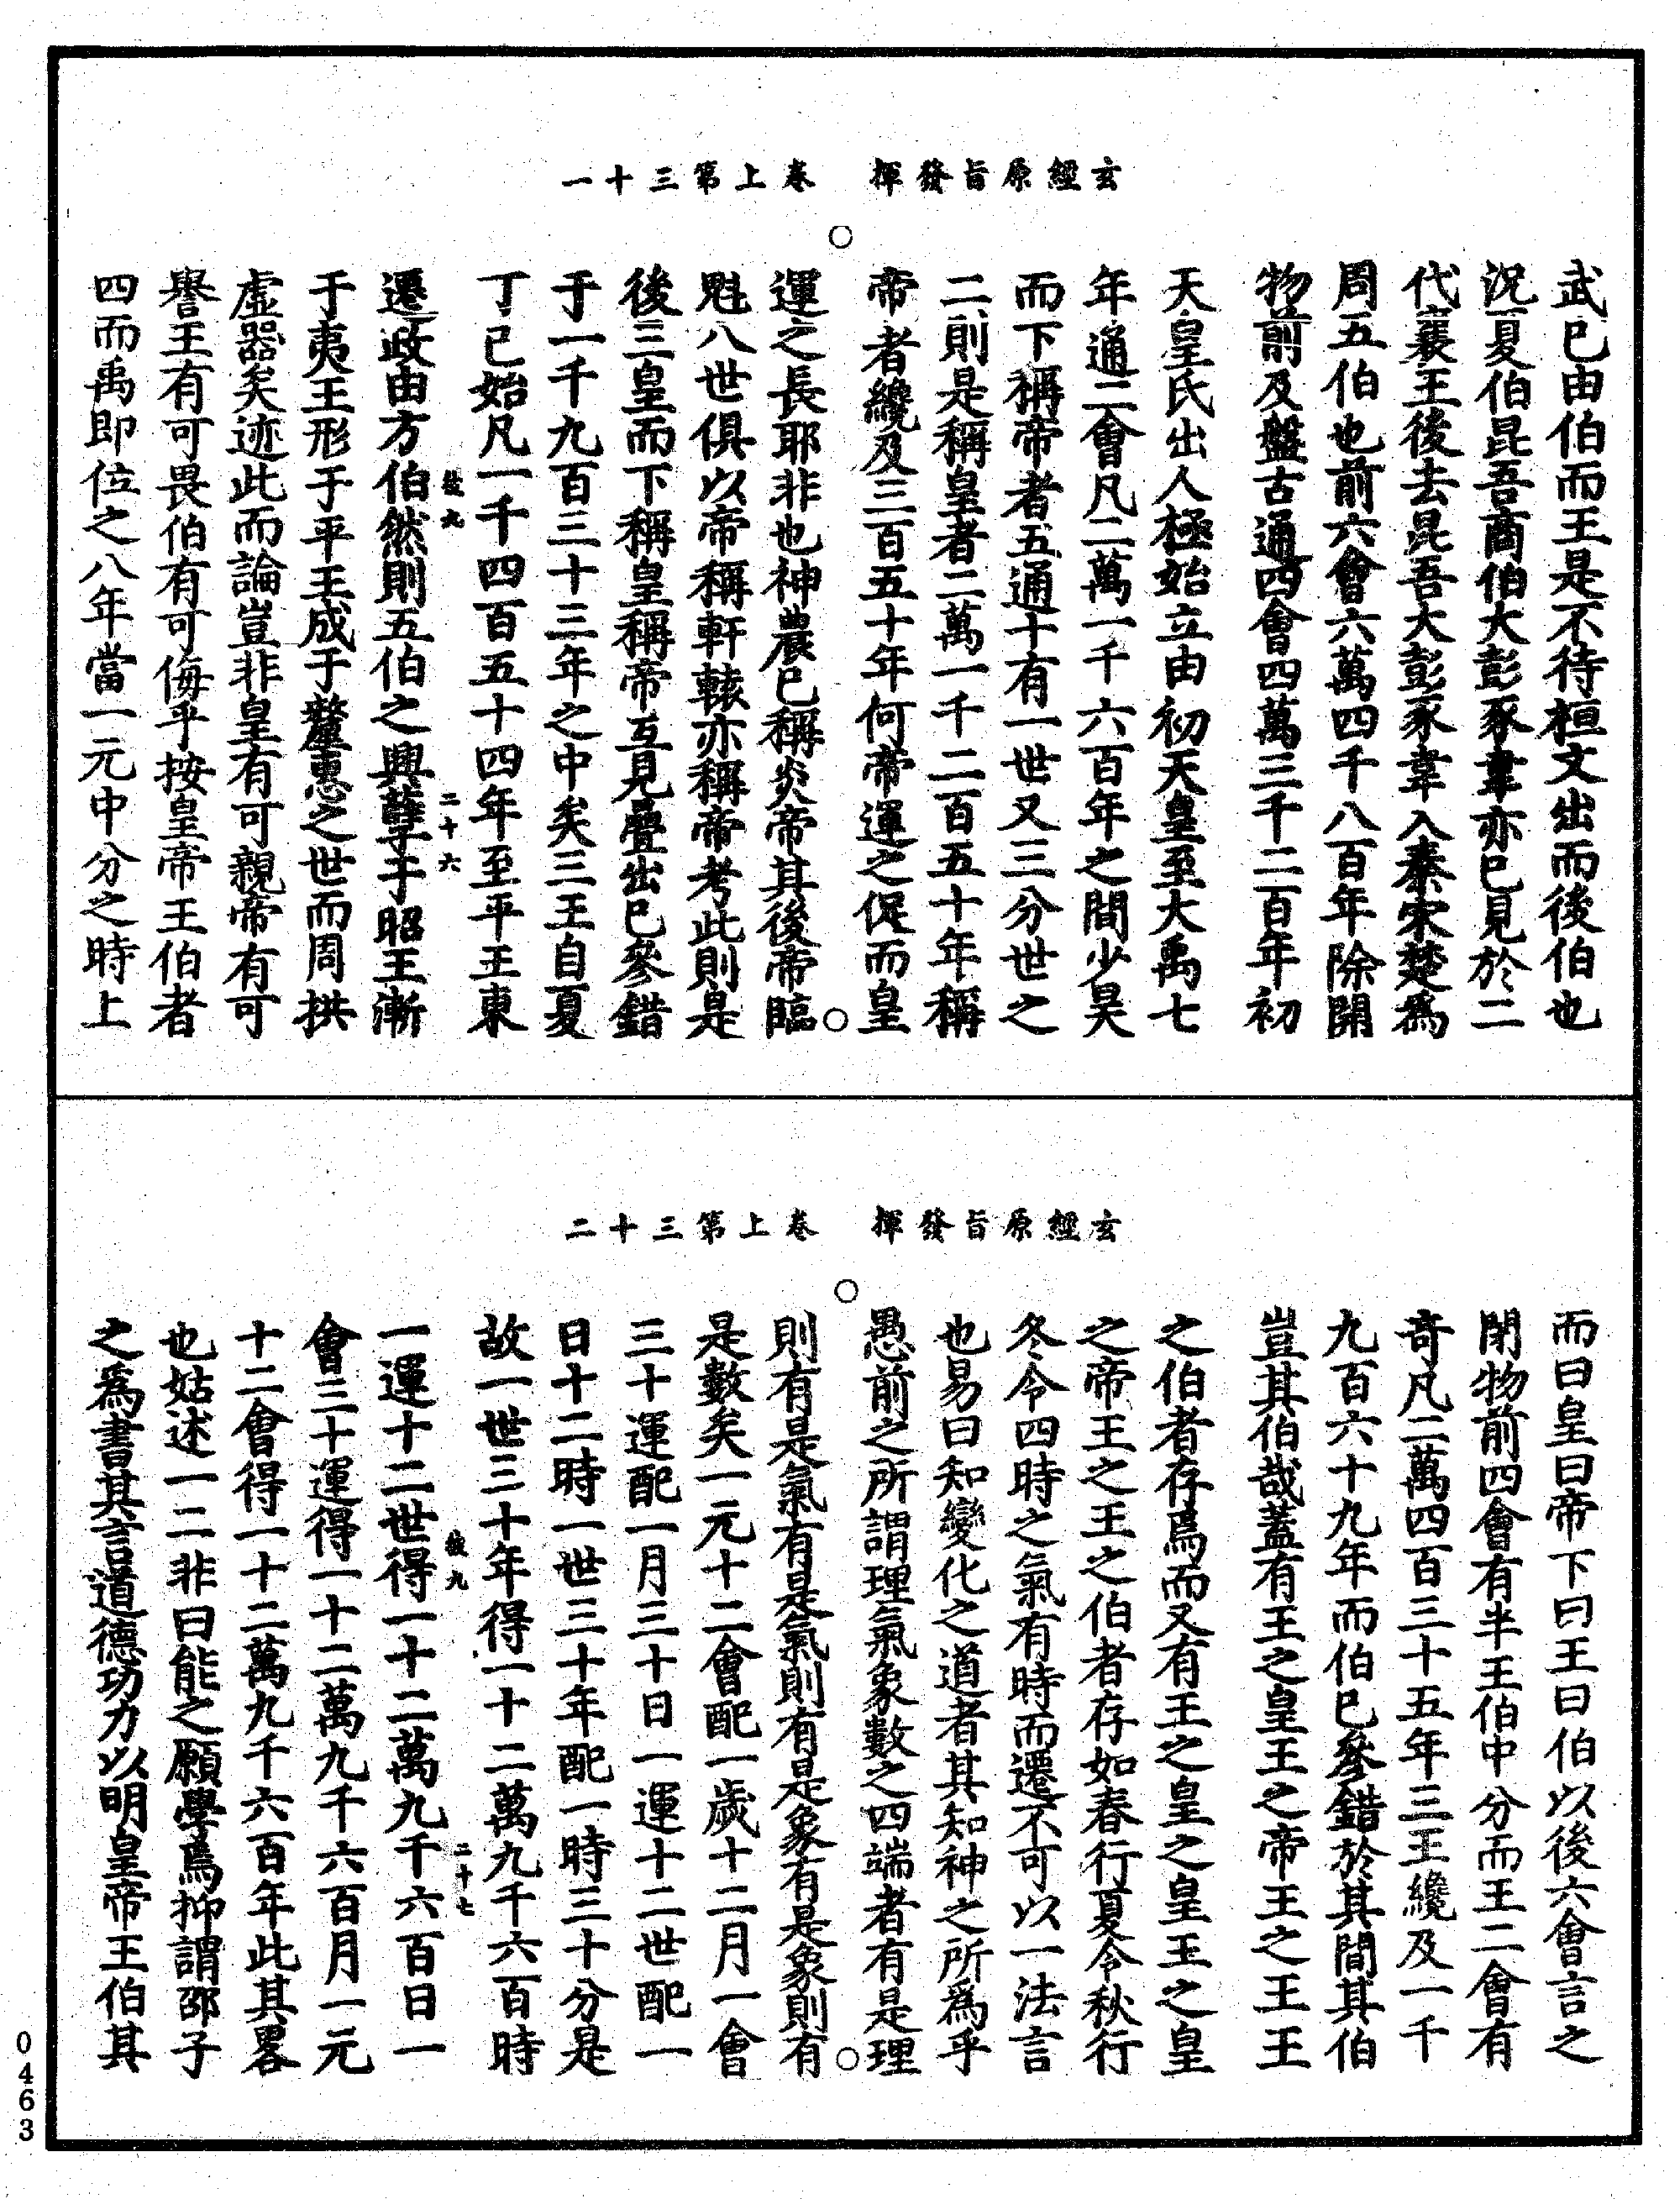 玄經原旨發揮　卷上第三十一
武已由伯而王是不待桓文出而後伯也
況夏伯昆吾商伯大彭豕韋亦已見於二
代襄王後去昆吾大彭豕韋入秦宋楚爲
周五伯也前六會六萬四千八百年除開
物前及盤古通四會四萬三千二百年初
天皇氏出人極始立由初天皇至大禹七
年通二會凡二萬一千六百年之間少昊
而下稱帝者五通十有一世又三分世之
二則是稱皇者二萬一千二百五十年稱
帝者纔及三百五十年何帝運之促而皇
運之長耶非也神農已稱炎帝其後帝臨
魁八世俱以帝稱軒轅亦稱帝考此則是
後三皇而下稱皇稱帝互見疊出已參錯
于一千九百三十三年之中矣三王自夏
丁巳始凡一千四百五十四年至平王東
遷政由方伯然則五伯之興孽于昭王漸
彼九
二十六
于夷王形于平王成于釐惠之世而周拱
虛器矣迹此而論豈非皇有可親帝有可
譽王有可畏伯有可侮乎按皇帝王伯者
四而禹即位之八年當一元中分之時上
玄經原旨發揮　卷上第三十二
而曰皇曰帝下曰王曰伯以後六會言之
閉物前四會有半王伯中分而王二會有
奇凡二萬四百三十五年三王纔及一千
九百六十九年而伯已參錯於其間其伯
豈其伯哉蓋有王之皇王之帝王之王王
之伯者存焉而又有王之皇之皇王之皇
之帝王之王之伯者存如春行夏令秋行
冬令四時之氣有時而遷不可以一法言
也易曰知變化之道者其知神之所爲乎
愚前之所謂理氣象數之四端者有是理
則有是氣有是氣則有是象有是象則有
是數矣一元十二會配一歲十二月一會
三十運配一月三十日一運十二世配一
日十二時一世三十年配一時三十分是
故一世三十年得一十二萬九千六百時
一運十二世得一十二萬九千六百日一
彼九
二十七
會三十運得一十二萬九千六百月一元
十二會得一十二萬九千六百年此其畧
也姑述一二非曰能之願學焉抑謂邵子
之爲書其言道德功力以明皇帝王伯其
0463